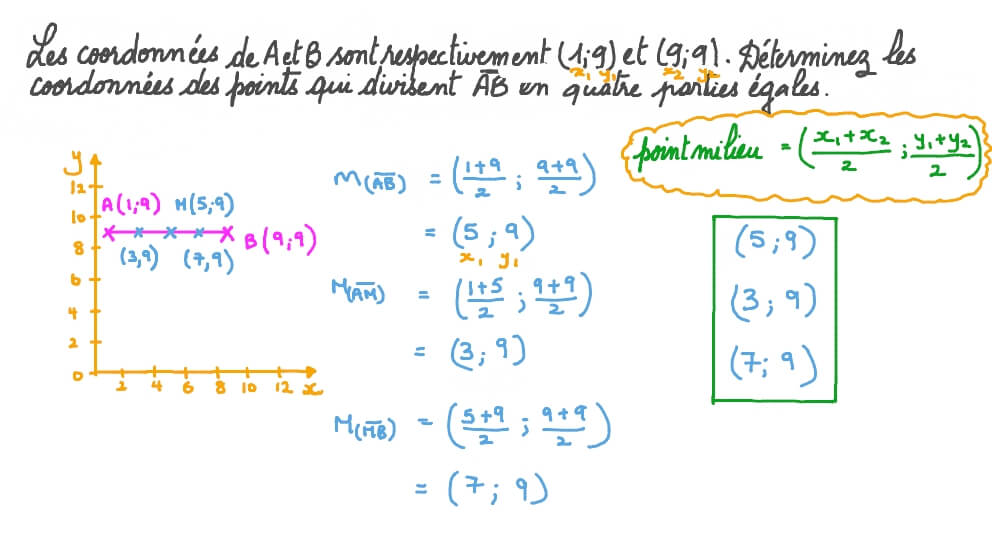 Les coordonnées de A et B sont respectivement (1;9) et (9;9). Déterminez les
x₁ y₁ x₂ y₂
coordonnées des points qui divisent A̅B̅ en quatre parties égales.
point milieu = ((x₁+x₂)/2 ; (y₁+y₂)/2)
y
12
10
8
6
4
2
0
2 4 6 8 10 12 x
A(1;9) M(5;9)
B(9;9)
(3,9) (7,9)
M(A̅B̅) = ((1+9)/2 ; (9+9)/2)
= (5 ; 9)
x₁ y₁
M(A̅M̅) = ((1+5)/2 ; (9+9)/2)
= (3; 9)
M(M̅B̅) = ((5+9)/2 ; (9+9)/2)
= (7; 9)
(5;9)
(3; 9)
(7; 9)